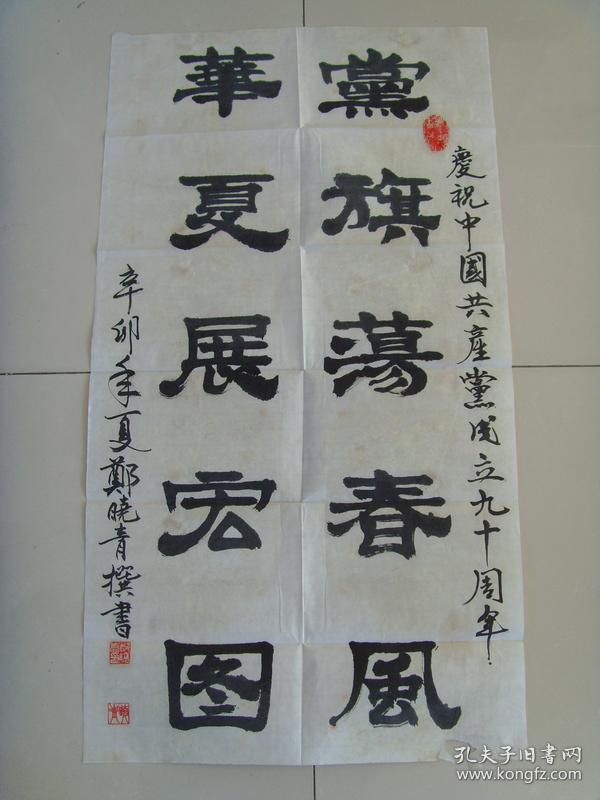 慶祝中國共產黨成立九十周年
黨旗蕩春風
華夏展宏图
辛卯年夏鄭曉青撰書
孔夫子旧书网
www.kongfz.com